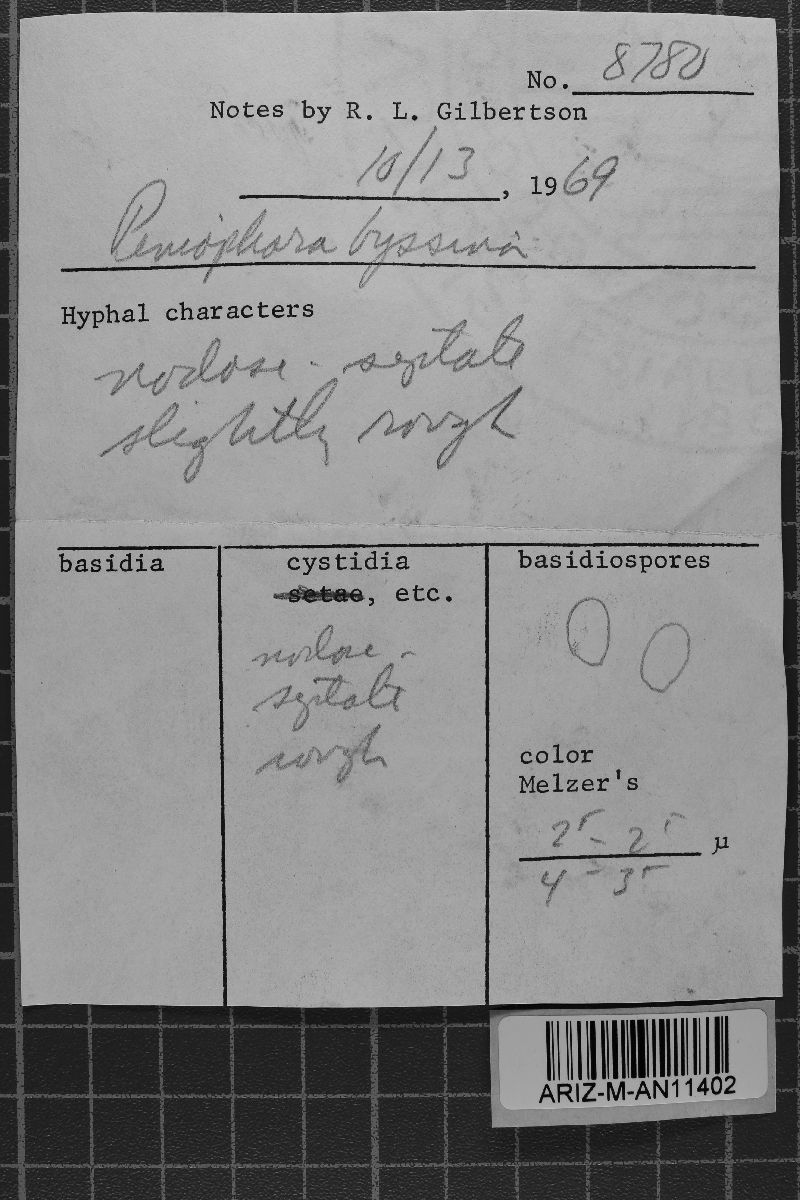 No. 8780
Notes by R. L. Gilbertson
10/13, 1969
Peniophora byssina
Hyphal characters
nodose-septate
slightly rough
basidia
cystidia
setae, etc.
nodose-
septate
rough
basidiospores
color
Melzer's
µ
ARIZ-M-AN11402